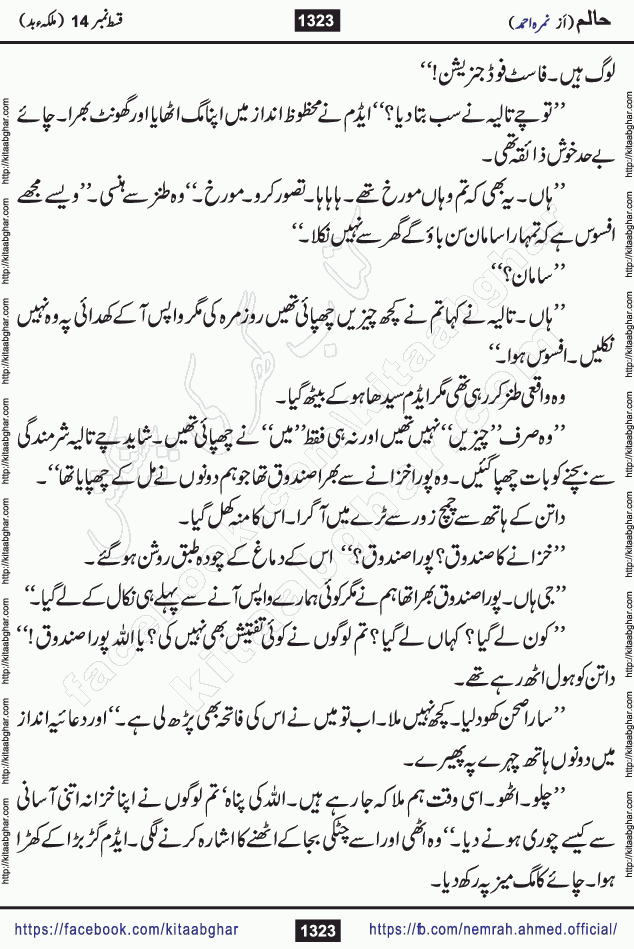 قسط نمبر 14 (ملکہء بد)
1323
حالم (از نمرہ احمد)
لوگ ہیں۔ فاسٹ فوڈ جنریشن!‘‘
’’تو چے تالیہ نے سب بتا دیا؟‘‘ ایڈم نے محظوظ انداز میں اپنا مگ اٹھایا اور گھونٹ بھرا۔ چائے
بے حد خوش ذائقہ تھی۔
’’ہاں۔ یہ بھی کہ تم وہاں مورخ تھے۔ ہاہاہا۔ تصور کرو۔ مورخ۔‘‘ وہ طنز سے ہنسی۔ ’’ویسے مجھے
افسوس ہے کہ تمہارا سامان سن باؤ گے گھر سے نہیں نکلا۔‘‘
’’سامان؟‘‘
’’ہاں۔ تالیہ نے کہا تم نے کچھ چیزیں چھپائی تھیں روزمرہ کی مگر واپس آ کے کھدائی پہ وہ نہیں
نکلیں۔ افسوس ہوا۔‘‘
وہ واقعی طنز کر رہی تھی مگر ایڈم سیدھا ہو کے بیٹھ گیا۔
’’وہ صرف ’’چیزیں‘‘ نہیں تھیں اور نہ ہی فقط ’’میں‘‘ نے چھپائی تھیں۔ شاید چے تالیہ شرمندگی
سے بچنے کو بات چھپا گئیں۔ وہ پورا خزانے سے بھرا صندوق تھا جو ہم دونوں نے مل کے چھپایا تھا‘‘۔
داتن کے ہاتھ سے چمچ زور سے ٹرے میں آ گرا۔ اس کا منہ کھل گیا۔
’’خزانے کا صندوق؟ پورا صندوق؟‘‘ اس کے دماغ کے چودہ طبق روشن ہو گئے۔
’’جی ہاں۔ پورا صندوق بھرا تھا ہم نے مگر کوئی ہمارے واپس آنے سے پہلے ہی نکال کے لے گیا۔‘‘
’’کون لے گیا؟ کہاں لے گیا؟ تم لوگوں نے کوئی تفتیش بھی نہیں کی؟ یا اللہ پورا صندوق!‘‘
داتن کو ہول اٹھ رہے تھے۔
’’سارا صحن کھود لیا۔ کچھ نہیں ملا۔ اب تو میں نے اس کی فاتحہ بھی پڑھ لی ہے۔‘‘ اور دعائیہ انداز
میں دونوں ہاتھ چہرے پہ پھیرے۔
’’چلو۔ اٹھو۔ اسی وقت ہم ملاکہ جا رہے ہیں۔ اللہ کی پناہ‘ تم لوگوں نے اپنا خزانہ اتنی آسانی
سے کیسے چوری ہونے دیا۔‘‘ وہ اٹھی اور اسے چٹکی بجا کے اٹھنے کا اشارہ کرنے لگی۔ ایڈم گڑبڑا کے کھڑا
ہوا۔ چائے کا مگ میز پہ رکھ دیا۔
http://kitaabghar.com http://kitaabghar.com http://kitaabghar.com http://kitaabghar.com http://kitaabghar.com http://kitaabghar.com http://kitaabghar.com http://kitaabghar.com
http://kitaabghar.com http://kitaabghar.com http://kitaabghar.com http://kitaabghar.com http://kitaabghar.com http://kitaabghar.com http://kitaabghar.com http://kitaabghar.com
کتاب گھر کی پیشکش
facebook.com/kitaabghar
kitaabghar.com
https://facebook.com/kitaabghar
1323
https://fb.com/nemrah.ahmed.official/